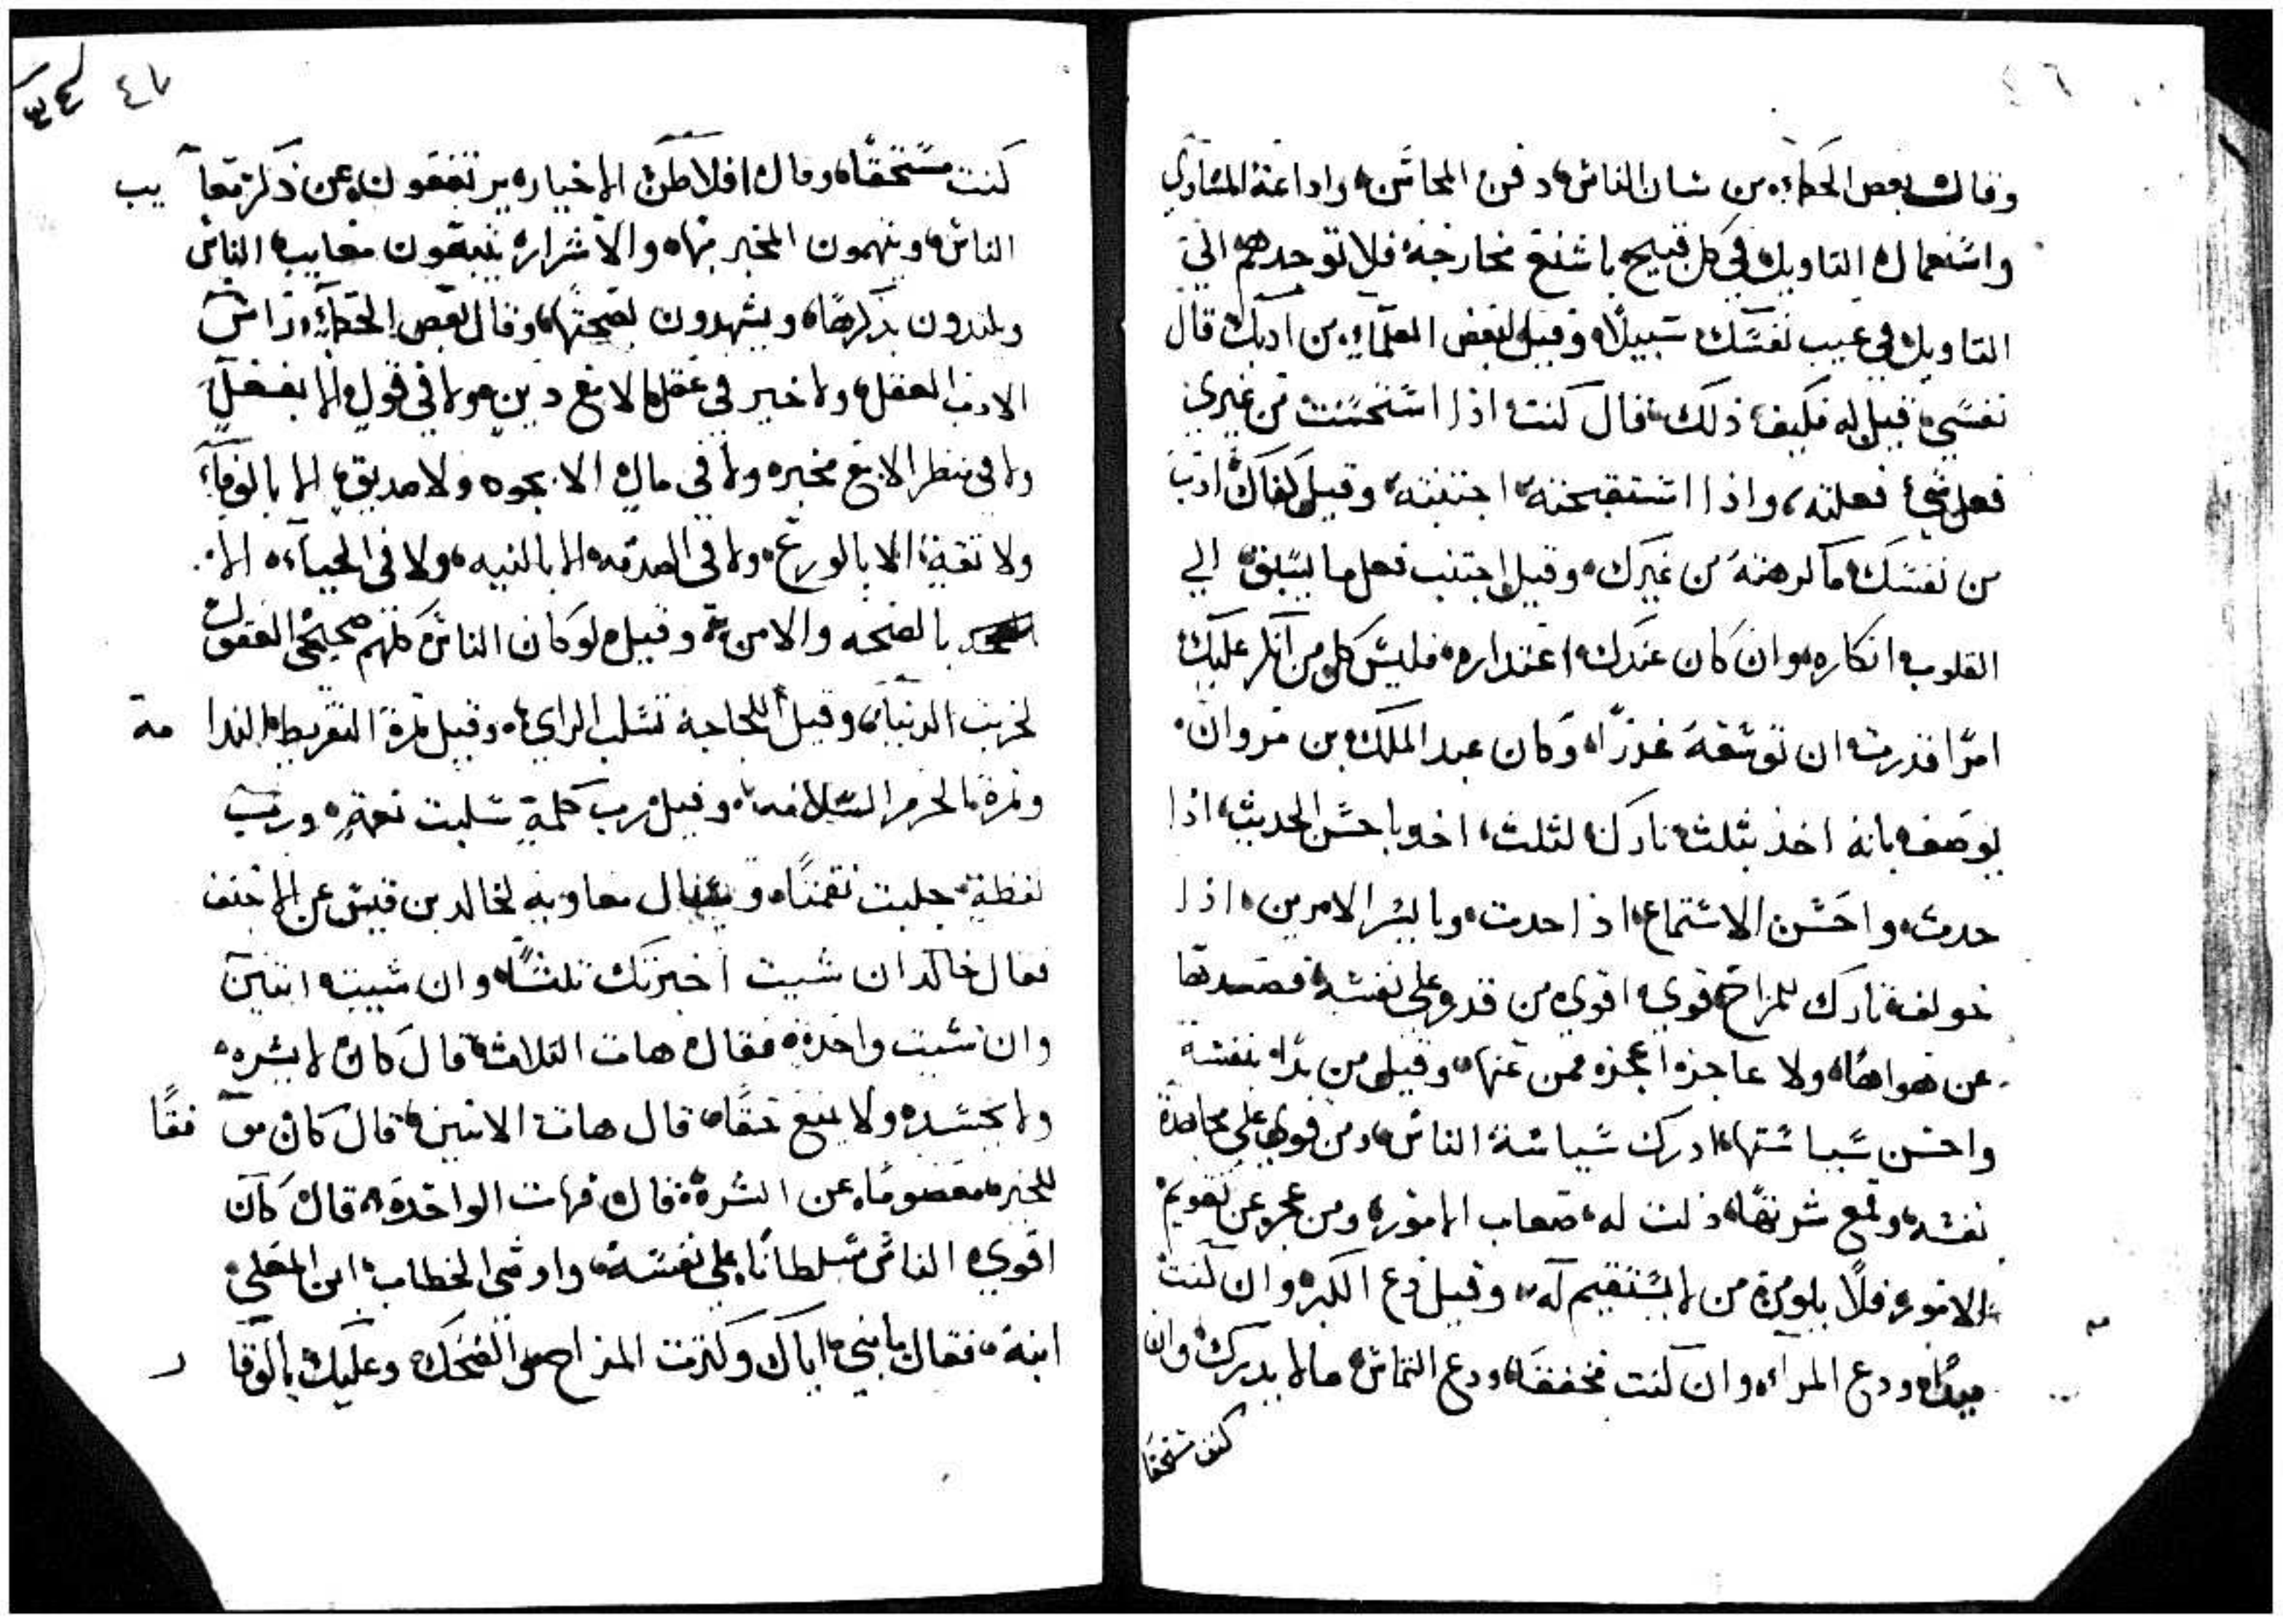 ٤٦
وقال بعض الحكماء من شان الناس دفن المحاسن واذاعة المساوي
واستعمال التاويل في كل قبيح باشنع مخارجه فلا توجدهم الي
التاويل في عيب نفسك سبيلا وقيل لبعض العلماء من ادبك قال
نفسي قيل له فكيف ذلك قال كنت اذا استحسنت من غيري
فعل شي فعلته واذا استقبحته اجتنبته وقيل كفاك ادب
من نفسك ما كرهته من غيرك وقيل اجتنب فعل ما يسبق الي
القلوب انكاره وان كان عندك اعتذاره فليس كل من انكر عليك
امرا قدرت ان توسعه عذرا وكان عبد الملك بن مروان
يوصف بانه اخذ بثلث تارك لثلث اخد باحسن الحديث اذا
حدث واحسن الاستماع اذا حدث وبايسر الامرين اذا
خولف تارك للمزاح قوي اقوي من قدر علي نفسه فصدها
عن هواها ولا عاجز اعجز ممن عنها وقيل من بدا بنفسه
واحسن سياستها ادرك سياسة الناس ومن قوي علي مجاهدة
نفسه وقمع شرتها ذلت له صعاب الامور ومن عجز عن تقويم
الامور فلا يلومن من لا يستقيم له وقيل دع الكبر وان كنت
ودع المراء وان كنت محقا ودع التماس ما لا يدرك وان
كنت مستحقا
٤٧
كنت مستحقا وقال افلاطن الاخيار يرتفعون عن ذكر معايب
الناس ويتهمون المخبر بها والاشرار يتبعون معايب الناس
ويلتذون بذكرها ويشهدون بصحتها وقال بعض الحكماء راس
الادب العقل ولا خير في عقل الا مع دين ولا في قول الا بفعل
ولا في منظر الا مع مخبر ولا في مال الا بجود ولا صديق الا بالوفاء
ولا ثقة الا بالورع ولا في الصدقه الا بالنيه ولا في الحياه الا
بالصحه والامن وقيل لو كان الناس كلهم صحيحي العقول
لخربت الدنيا وقيل اللجاجة تسلب الراي وقيل ثمرة التفريط الندامة
وثمرة الحزم السلامه وقيل رب كلمة سلبت نعمة ورب
لفظة جلبت نقمتا وسال معاويه لخالد بن قيس عن الاحنف
فقال خالد ان شيت اخبرتك ثلثا وان شييت اثنين
وان شيت واحدة فقال هات الثلاثة قال كان لا يشره
ولا يحسد ولا يمنع حقا قال هات الاثنين قال كان موفقا
للخير معصوما عن الشرة قال فهات الواحدة قال كان
اقوي الناس سلطانا علي نفسه واوصي الخطاب ابن المعلي
ابنه فقال يا بني اياك وكثرت المزاح والضحك وعليك بالوقار